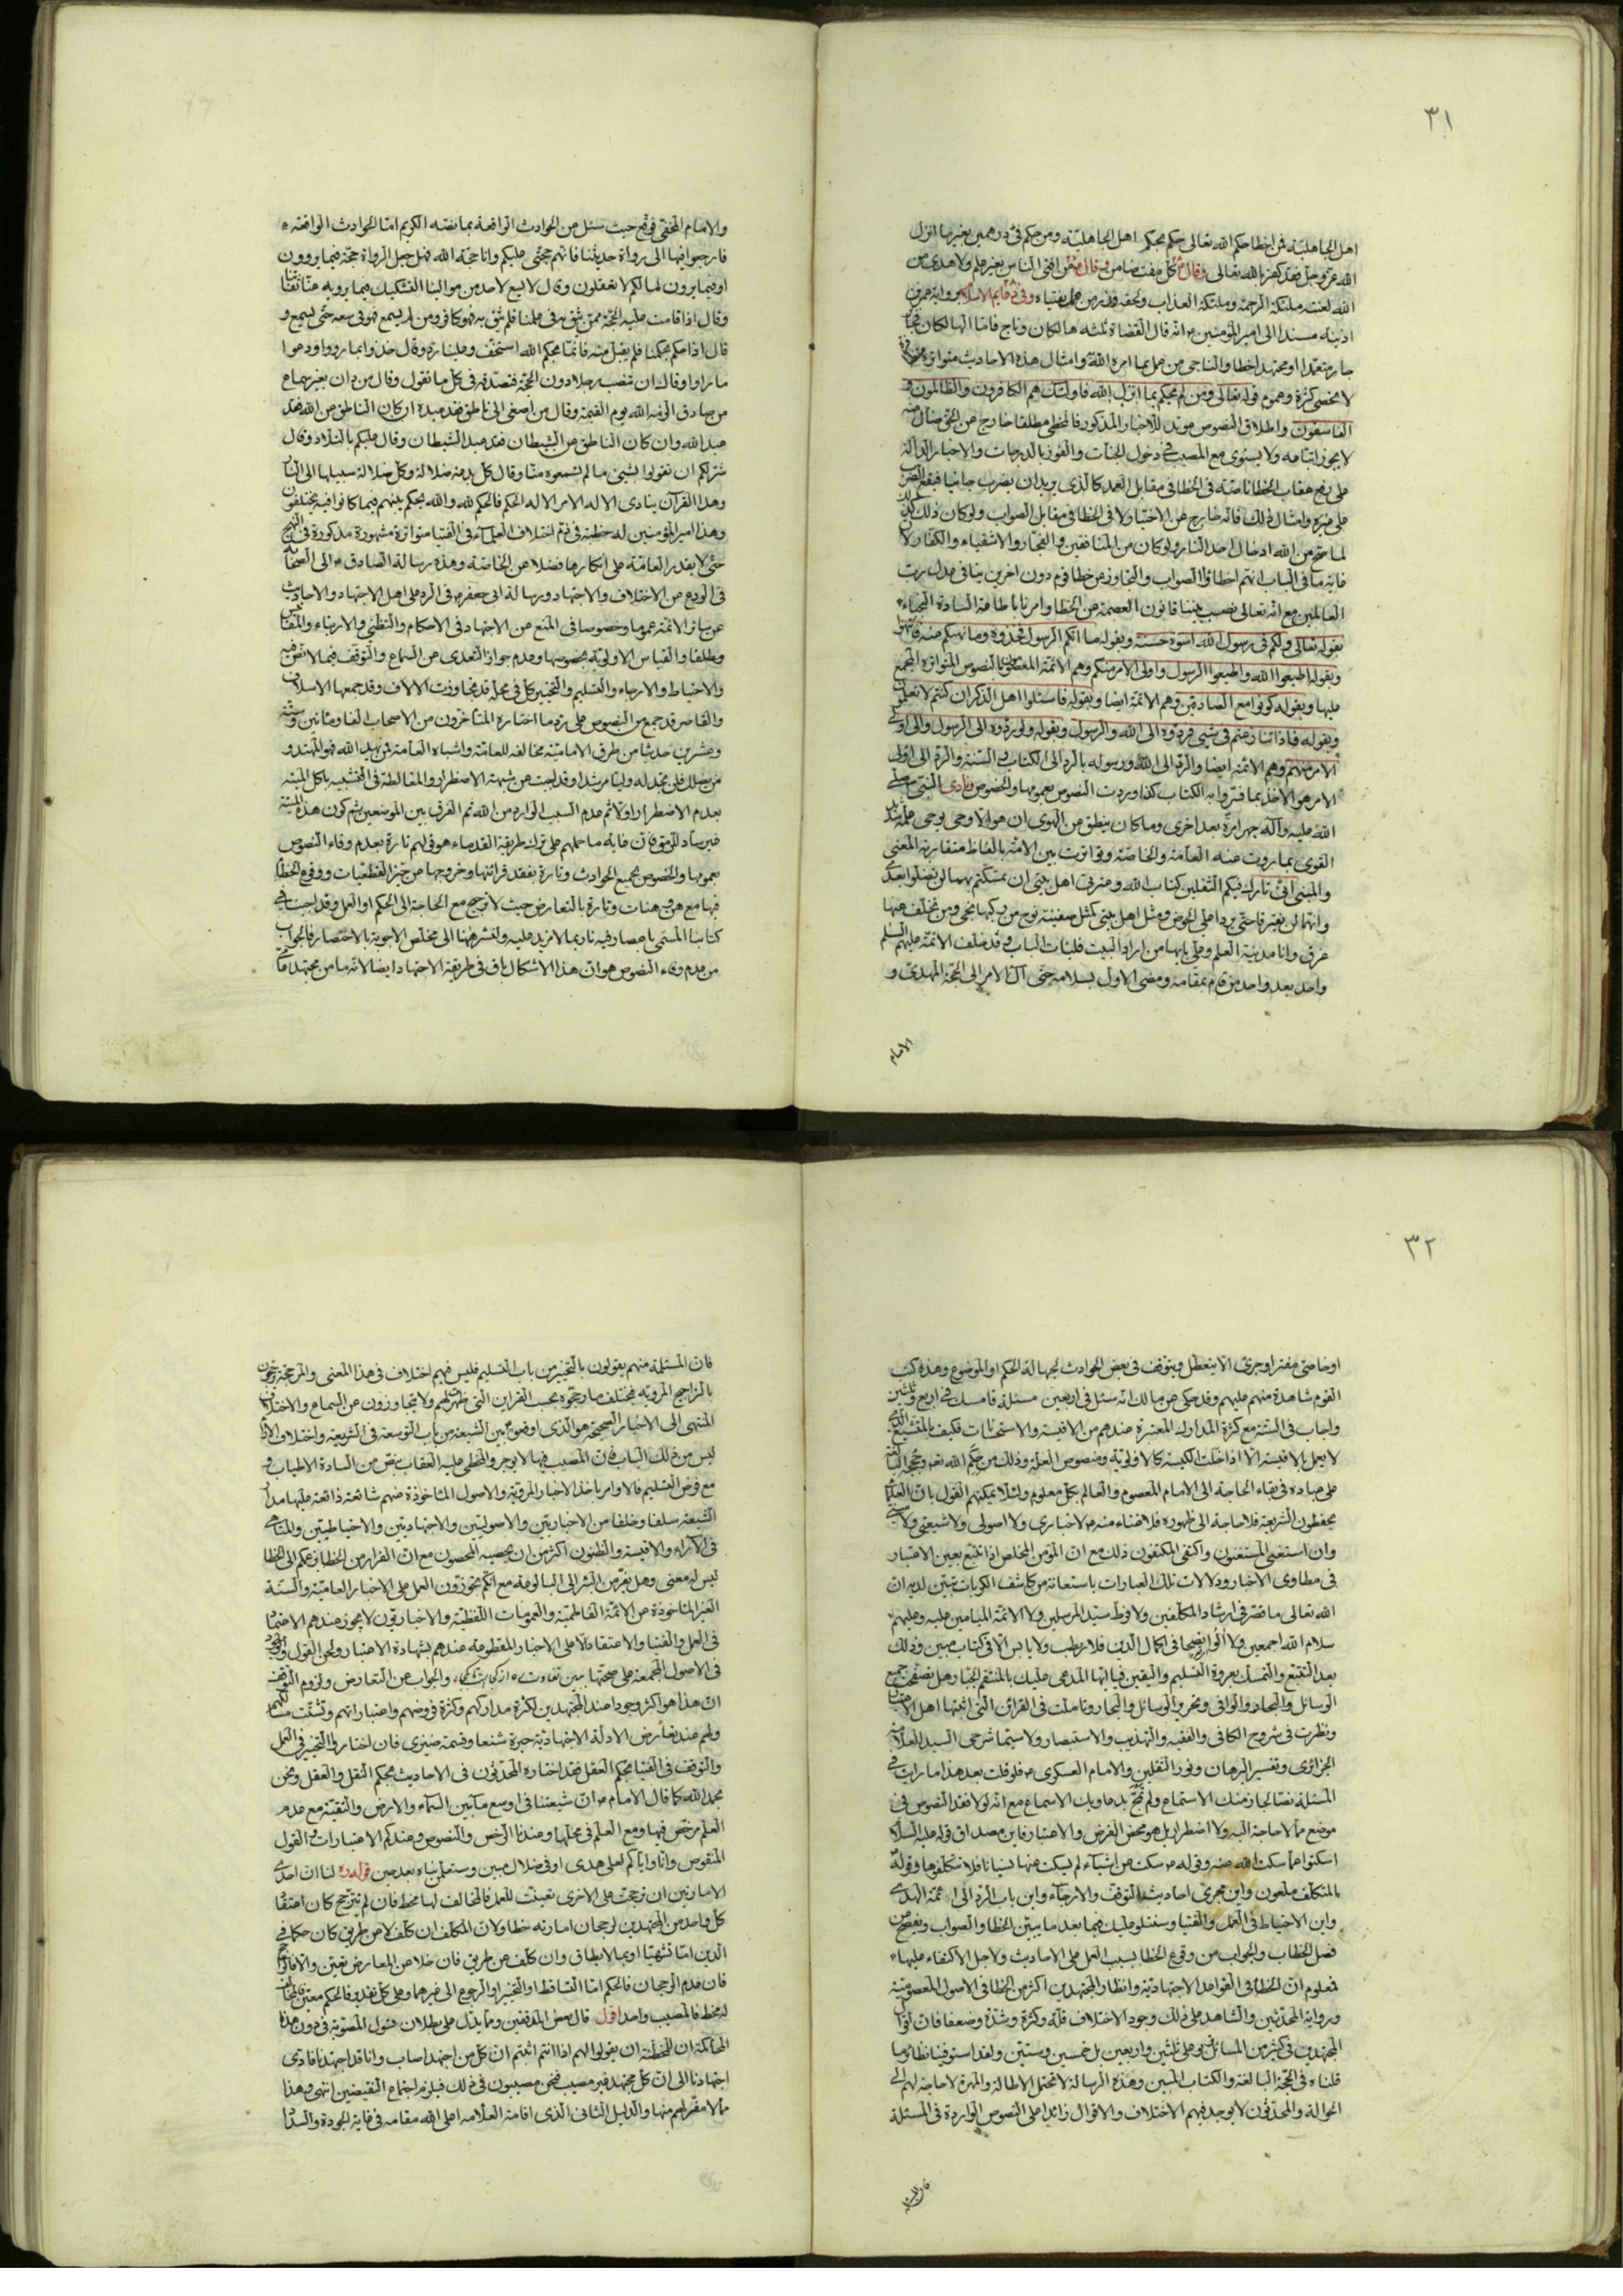 ٣١
اهل الجاهلية فمن اخطا حكم الله تعالى حكم بحكم اهل الجاهلية ومن حكم في درهمين بغير ما انزل
الله عز وجل فقد كفر بالله تعالى وقال كل مفت ضامن وقال من افتى الناس بغير علم ولا هدى من
الله لعنته ملئكة الرحمة وملئكة العذاب ولحقه وزر من عمل بفتياه وفي دعايم الاسلام
اذينة مسندا الى امير المؤمنين انه قال القضاة ثلثة هالكان وناج فاما الهالكان
جار متعمدا او مجتهد اخطا والناجي من عمل بما امره الله وامثال هذه الاحاديث متواترة
لا تحصى كثرة وعموم قوله تعالى ومن لم يحكم بما انزل الله فاولئك هم الكافرون والظالمون و
الفاسقون واطلاق النصوص مؤيد للاخبار المذكورة فالمخطي مطلقا خارج عن الحق ضال
لا يجوز اتباعه ولا يستوى مع المصيب في دخول الجنات والفوز بالدرجات والاخبار الدالة
على رفع عقاب الخطا خاصة في الخطا في مقابل العمد كالذي يريد ان يضرب جانيا فيقع
على غيره وامثال ذلك فانه خارج عن الاختيار لا في الخطا في مقابل الصواب ولو كان ذلك
لما صح من الله ادخال احد النار ولو كان من المنافقين والفجار والاشقياء والكفار
غاية ما في الباب انهم اخطاوا الصواب والتجاوز عن خطا قوم دون اخرين ينافي عدل رب
العالمين مع انه تعالى نصب بيننا قانون العصمة عن الخطا وامرنا باطاعة السادة النجباء
بقوله تعالى ولكم في رسول الله اسوة حسنة وبقوله ما اتيكم الرسول فخذوه وما نهيكم عنه فانتهوا
وبقوله اطيعوا الله واطيعوا الرسول واولي الامر منكم وهم الائمة المعصومون بالنصوص المتواترة المجمع
عليها وبقوله كونوا مع الصادقين وهم الائمة ايضا وبقوله فاسئلوا اهل الذكر ان كنتم لا تعلمون
وبقوله فان تنازعتم في شيء فردوه الى الله والرسول وبقوله ولو ردوه الى الرسول والى اولي
الامر منهم وهم الائمة ايضا والرد الى الله ورسوله بالرد الى الكتاب والسنة والرد الى اولي
الامر هو الاخذ بما فسروا به الكتاب كذا وردت النصوص بعمومها والخصوص ونادى النبي صلى
الله عليه وآله جهرا مرة بعد اخرى وما كان ينطق عن الهوى ان هو الا وحي يوحى علمه شديد
القوى بما روت عنه العامة والخاصة وتواترت بين الامة بالفاظ متقاربة المعنى
والمبنى اني تارك فيكم الثقلين كتاب الله وعترتي اهل بيتي ان تمسكتم بهما لن تضلوا بعدي
وانهما لن يفترقا حتى يردا علي الحوض ومثل اهل بيتي كمثل سفينة نوح من ركبها نجى ومن تخلف عنها
غرق وانا مدينة العلم وعلي بابها من اراد البيت فليات الباب وقد خلف الائمة عليهم السلام
واحد بعد واحد من قام بمقامه ومضى الاول بسلامه حتى آل الامر الى الحجة المهدي و
الامام
والامام المختفي وقع حيث سئل عن الحوادث الواقعة بما نصه الكريم اما الحوادث الواقعة
فارجعوا فيها الى رواة حديثنا فانهم حجتي عليكم وانا حجة الله فهل جعل الرواة حجة فيما يروون
او فيما يرون مالكم لا تعقلون وقال لا يسع لاحد من موالينا التشكيك فيما يرويه عنا ثقاتنا
وقال اذا قامت عليه الحجة ممن يثق به في علمنا فلم يثق به فهو كافر ومن لم يسمع فهو في سعة حتى يسمع و
قال اذا حكم بحكمنا فلم يقبل منه فانما بحكم الله استخف وعلينا رد وقال خذوا بما رووا ودعوا
ما راوا وقال ان تنصب رجلا دون الحجة فتصدقه في كل ما تقول وقال من دان بغير سماع
من صادق الزمه الله يوم القيمة وقال من اصغى الى ناطق فقد عبده ان كان الناطق عن الله فقد
عبد الله وان كان الناطق عن الشيطان فقد عبد الشيطان وقال عليكم بالتلاد وقال
شر لكم ان تقولوا بشيء ما لم تسمعوه منا وقال كل بدعة ضلالة وكل ضلالة سبيلها الى النار
وهذا القرآن ينادى الا له الامر الا له الحكم فالحكم لله والله يحكم بينهم فيما كانوا فيه يختلفون
وهذا امير المؤمنين له خطبة في ذم اختلاف العلماء في الفتيا متواترة مشهورة مذكورة في النهج
حتى لا يقدر العامة على انكارها فضلا عن الخاصة وهذه رسالة الصادق الى اصحابه
في الردع عن الاختلاف والاجتهاد ورسالة ابي جعفر في الرد على اهل الاجتهاد والاحاديث
عن سائر الائمة عموما وخصوصا في المنع عن الاجتهاد في الاحكام والتظني والارتياء
مطلقا والقياس الاولوية بخصوصها وعدم جواز التعدى عن السماع والتوقف فيما لا نص فيه
والاحتياط والارجاء والتسليم والتخيير كل في محله قد تجاوزت الالاف وقد جمعها الاسلاف
والقاصر قد جمع من النصوص على رد ما اختاره المتاخرون من الاصحاب الفا ومائتين وستة
وعشرين حديثا من طرق الامامية مخالفة للعامة واشباه العامة فمن يهد الله فهو المهتد و
من يضلل فلن تجد له وليا مرشدا وقد اجبت عن شبهة الاضطرار والمغالطة في التشبيه باكل الميتة
بعدم الاضطرار اولا ثم عدم السبب الوارد من الله ثم الفرق بين الموضعين ثم كون هذه الميتة
غير ساد للرمق فان غاية ما حملهم على ترك طريقة القدماء هو قولهم تارة بعدم وفاء النصوص
بعمومها والخصوص بجميع الحوادث وتارة بفقد قرائنها وخروجها عن حيز القطعيات ووقوع الخطا
فيها مع هن وهنات وتارة بالتعارض حيث لا ترجيح مع الحاجة الى الحكم او العمل وقد اجبت في
كتابنا المسمى بما لا مزيد عليه ولنشر هنا الى مختلص الاجوبة بالاختصار فالجواب
عن عدم وفاء النصوص هو ان هذا الاشكال باق في طريقة الاجتهاد ايضا لانه ما من مجتهد
٣٢
او خاصي مفتر او جرى الا يتعطل ويتوقف في بعض الحوادث لجهالة الحكم او الموضوع وهذه كتب
القوم شاهدة منهم عليهم وقد حكى عن مالك انه سئل في اربعين مسئلة فامسك في اربع وثلثين
واجاب في الست مع كثرة المدارك المعتبرة عندهم من الاقيسة والاستحسانات فكيف بالمتشيع الذي
لا يعمل بالاقيسة الا اذا خلت الكيسة كالاولوية ومنصوص العلة وذلك من حكم الله تعالى وحججه البالغة
على عباده في بقاء الحاجة الى الامام المعصوم والعالم بكل معلوم ولئلا يمكنهم القول بان العلماء
يحفظون الشريعة فلا حاجة الى ظهوره فلا اغناء منه لا اخبارى ولا اصولى ولا شيعي ولا سني
وان استغنى المستغنون واكتفى المكتفون ذلك مع ان المؤمن المخلص اذا تتبع بعين الاعتبار
في مطاوى الاخبار ودلالات تلك العبارات باستعانة من كاشف الكربات تبين لديه ان
الله تعالى ما قصر في ارشاد المكلفين ولا فرط سيد المرسلين ولا الائمة الميامين عليه وعليهم
سلام الله اجمعين ولا الوا نصحا في اكمال الدين فلا رطب ولا يابس الا في كتاب مبين وذلك
بعد التتبع والتمسك بعروة التسليم واليقين فيا ايها المدعي عليك بالمنتقم الجبار وهل تصفحت جميع
الوسائل والبحار والوافي ومحرر الوسائل والبحار وتاملت في القرائن التي اثبتها اهل الاعتبار
ونظرت في شروح الكافي والفقيه والتهذيب والاستبصار ولا سيما شرحي السيد العلامة
الجزائرى وتفسير البرهان ونور الثقلين والامام العسكرى فلو قلت بعد هذا ما رايت في
المسئلة نصا لجاز منك الاستماع ولم تمج بدعاويك الاسماع مع انه لو لا فقد النصوص في
موضع فما لا حاجة اليه ولا اضطرار بل هو محض الفرض والاعتبار فاين مصداق قوله عليه السلام
اسكتوا عما سكت الله عنه وقوله سكت عن اشياء لم يسكت عنها نسيانا فلا تتكلفوها وقوله
المتكلف ملعون واين مجرى احاديث التوقف والارجاء واين باب الرد الى ائمة الهدى
واين الاحتياط في العمل والفتيا وسنتلو عليك فيما بعد ما يبين الخطا والصواب ويفصح عن
فصل الخطاب والجواب عن وقوع الخطا بسبب العمل على الاحاديث ولاجل الاكتفاء عليها
فمعلوم ان الخطا في القواعد الاجتهادية وانظار المجتهدين اكثر من الخطا في الاصول المعصومية
ورواية المحدثين والشاهد على ذلك وجود الاختلاف قلة وكثرة وشدة وضعفا فان اقوال
المجتهدين في كثير من المسائل تربى على ثلثين واربعين بل خمسين وستين ولقد استوفينا نظائر ما
قلناه في الحجة البالغة والكتاب المبين وهذه الرسالة لا تحتمل الاطالة والمهرة لا حاجة لهم الى
الحوالة والمحدثون لا يوجد فيهم الاختلاف والاقوال زائدا على النصوص الواردة في المسئلة
فان المسئلة
فان المسئلة منهم يقولون بالتخيير من باب التسليم فليس فيهم اختلاف في هذا المعنى والمرجحة يرجحون
بالتراجيح المروية فمختلف ما رجحوه بحسب القراين التي ظهرت لهم ولا يتجاوزون عن السماع والاختلاف
المنتهى الى الاخبار الصحيحة هو الذي اوقعوا بين الشيعة من باب التوسعة في الشريعة واختلاف الآراء
ليس من ذلك الباب فان المصيب فيها لا يوجر والمخطي عليه العقاب بنص من السادة الاطياب و
مع فرض التسليم فالاوامر باخذ الاخبار المروية والاصول الماخوذة عنهم شائعة ذائعة عليها مدار
الشيعة سلفا وخلفا من الاخباريين والاصوليين والاجتهاديين والاحتياطيين والمناهي
في الآراء والاقيسة والظنون اكثر من ان يحصيه المحصون مع ان الفرار من الخطا بزعمكم الى الخطا
ليس له معنى وهل يفر من النشر الى البالوعة مع انكم تجوزون العمل على الاخبار العامية والسنة
الغير الماخوذة عن الائمة الفاطمية والعمومات اللفظية والاخباريون لا يجوز عندهم الاعتماد
في العمل والفتيا والاعتقاد الا على الاخبار المقطوعة عندهم بشهادة الاعتبار ولحن القول
في الاصول المجمعة على صحتها ببين تفاوت ره از كجاست تا بكجا والجواب عن التعارض ولزوم التوقف
ان هذا هو اكثر وجودا عند المجتهدين لكثرة مداركهم وكثرة فروضهم واعتباراتهم وتشتت
ولهم عند تعارض الادلة الاجتهادية حيرة شنعا وقسمة ضيزى فان اختاروا التخيير في العمل
والتوقف في الفتيا بحكم العقل فقد اختاره المحدثون في الاحاديث بحكم النقل والعقل ونحن
بحمد الله كما قال الامام ان شيعتنا في اوسع ما بين السماء والارض والتقية مع عدم
العلم مرخص فيها ومع العلم في محلها وعندنا الرخص والنصوص وعندكم الاعتبارات والقول
المنقوص وانا واياكم لعلى هدى او في ضلال مبين وستعلمن نباه بعد حين قوله ره لنا ان احدى
الامارتين ان ترجحت على الاخرى تعينت للعمل فالمخالف لها مخط فان لم تترجح كان اعتقاد
كل واحد من المجتهدين لرجحان امارته خطا ولان المكلف ان كلف لا عن طريق كان حكما في
الدين اما تشهيا او بما لا يطاق وان كلف عن طريق فان خلا عن المعارض تعين والا فالراجح
فان عدم الرجحان فالحكم اما التساقط او التخيير او الرجوع الى غيرهما وعلى كل تقدير فالحكم معين فالمخالف
له مخط فالمصيب واحد اقول قال بعض المدققين ومما يدل على بطلان قول المصوبة في دون هذه
المحاكمة ان للمخطئة ان يقولوا لهم اذا انتم اثبتم ان كل من اجتهد اصاب وانا قد اجتهدنا فادى
اجتهادنا الى ان كل مجتهد غير مصيب فنحن مصيبون في ذلك فيلزم اجتماع النقيضين انتهى وهذا
مما لا مفر لهم منها والدليل الثاني الذي اقامه العلامة اعلى الله مقامه في غاية الجودة والسداد